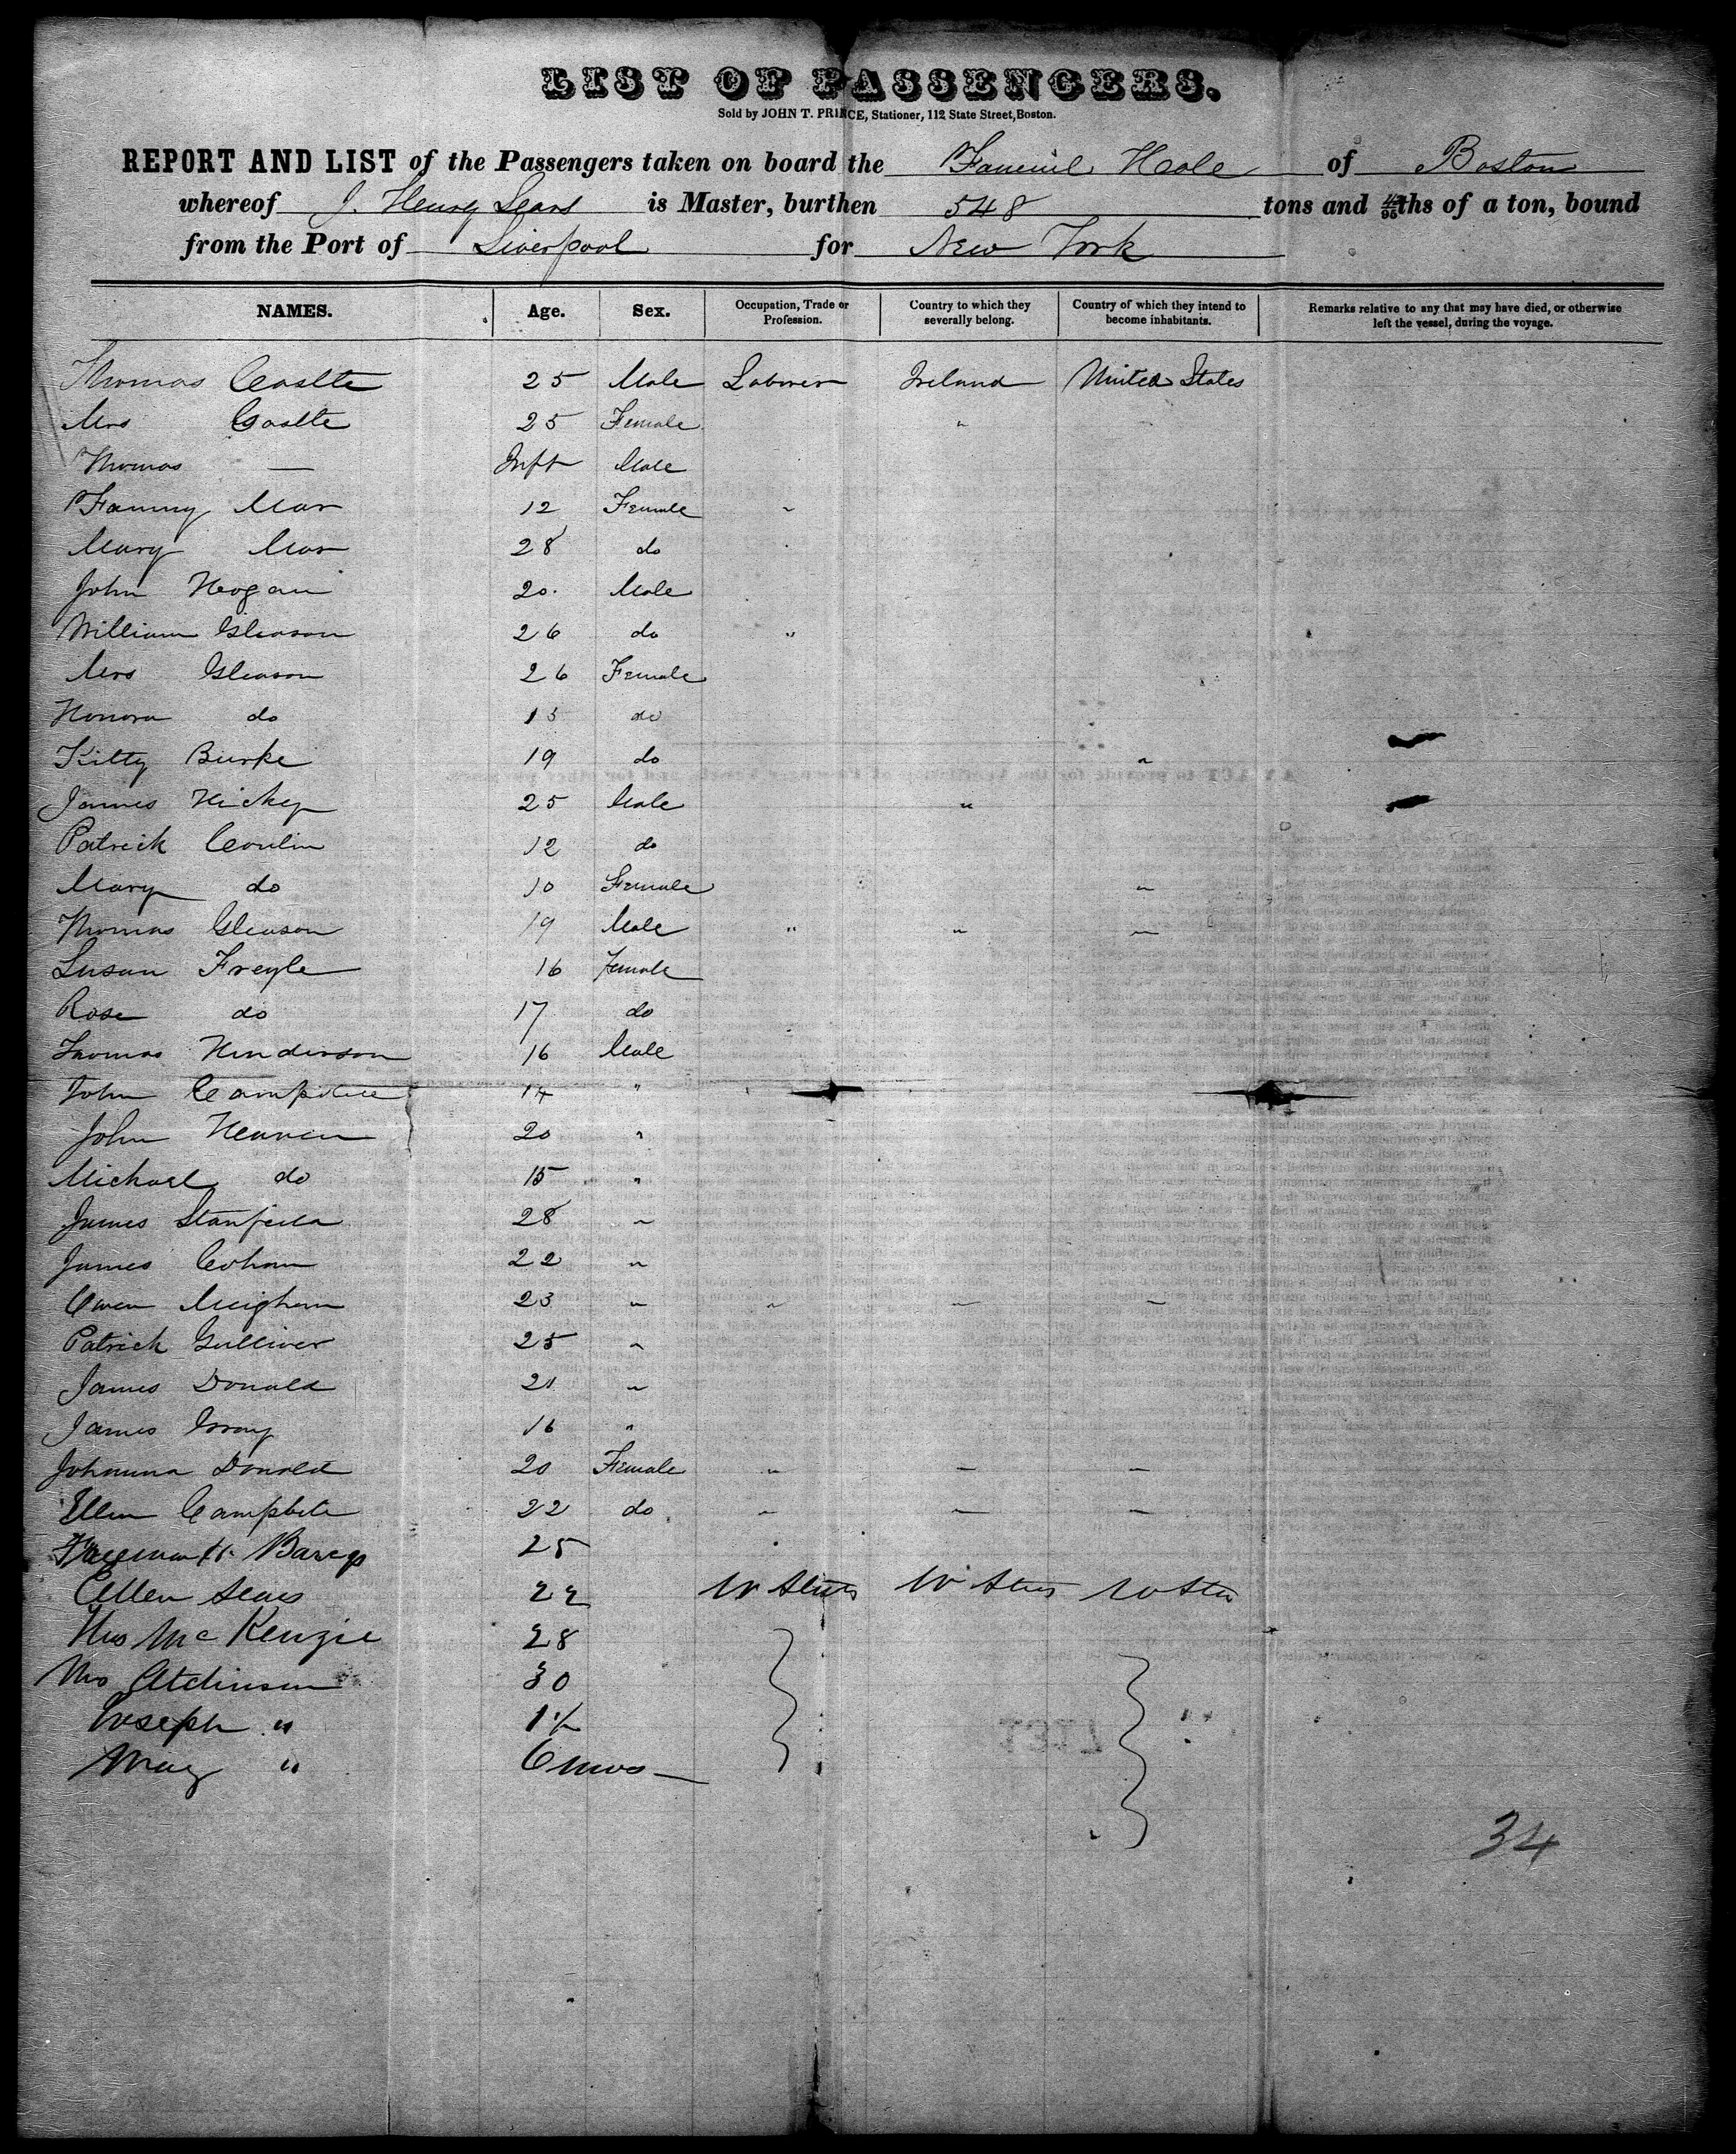 LIST OF PASSENGERS.
Sold by JOHN T. PRINCE, Stationer, 112 State Street, Boston.
REPORT AND LIST of the Passengers taken on board the Faneuil Hale of Boston
whereof J. Henry Sears is Master, burthen 548 tons and ths of a ton, bound
from the Port of Liverpool for New York
NAMES. Age. Sex. Occupation, Trade or Profession. Country to which they severally belong. Country of which they intend to become inhabitants. Remarks relative to any that may have died, or otherwise left the vessel, during the voyage.
Thomas 25 Male Laborer Ireland United States
Mrs 25 Female "
Thomas — Inft Male
Fanny Mar 12 Female "
Mary Mar 28 do
John Hogan 20 Male
William Gleason 26 do "
Mrs Gleason 26 Female
Honora do 13 do
Kitty Burke 19 do "
James Hickey 25 Male "
Patrick Conlin 12 do
Mary do 10 Female "
Thomas Gleason 19 Male " " "
Susan Freyle 16 Female
Rose do 17 do
Thomas Henderson 16 Male
John Campbell 14 "
John Heaven 20 "
Michael do 15 "
James Stanfield 28 "
James 22 "
Owen Meighan 23 " " " "
Patrick Gulliver 25 "
James Donald 21 "
James 16 "
Johanna Donald 20 Female " " "
Ellen Campbell 22 do " " "
25
Ellen Sears 22
Mrs McKenzie 28
Mrs Atchinson 30
Joseph " 1½
May " 6 mos
34